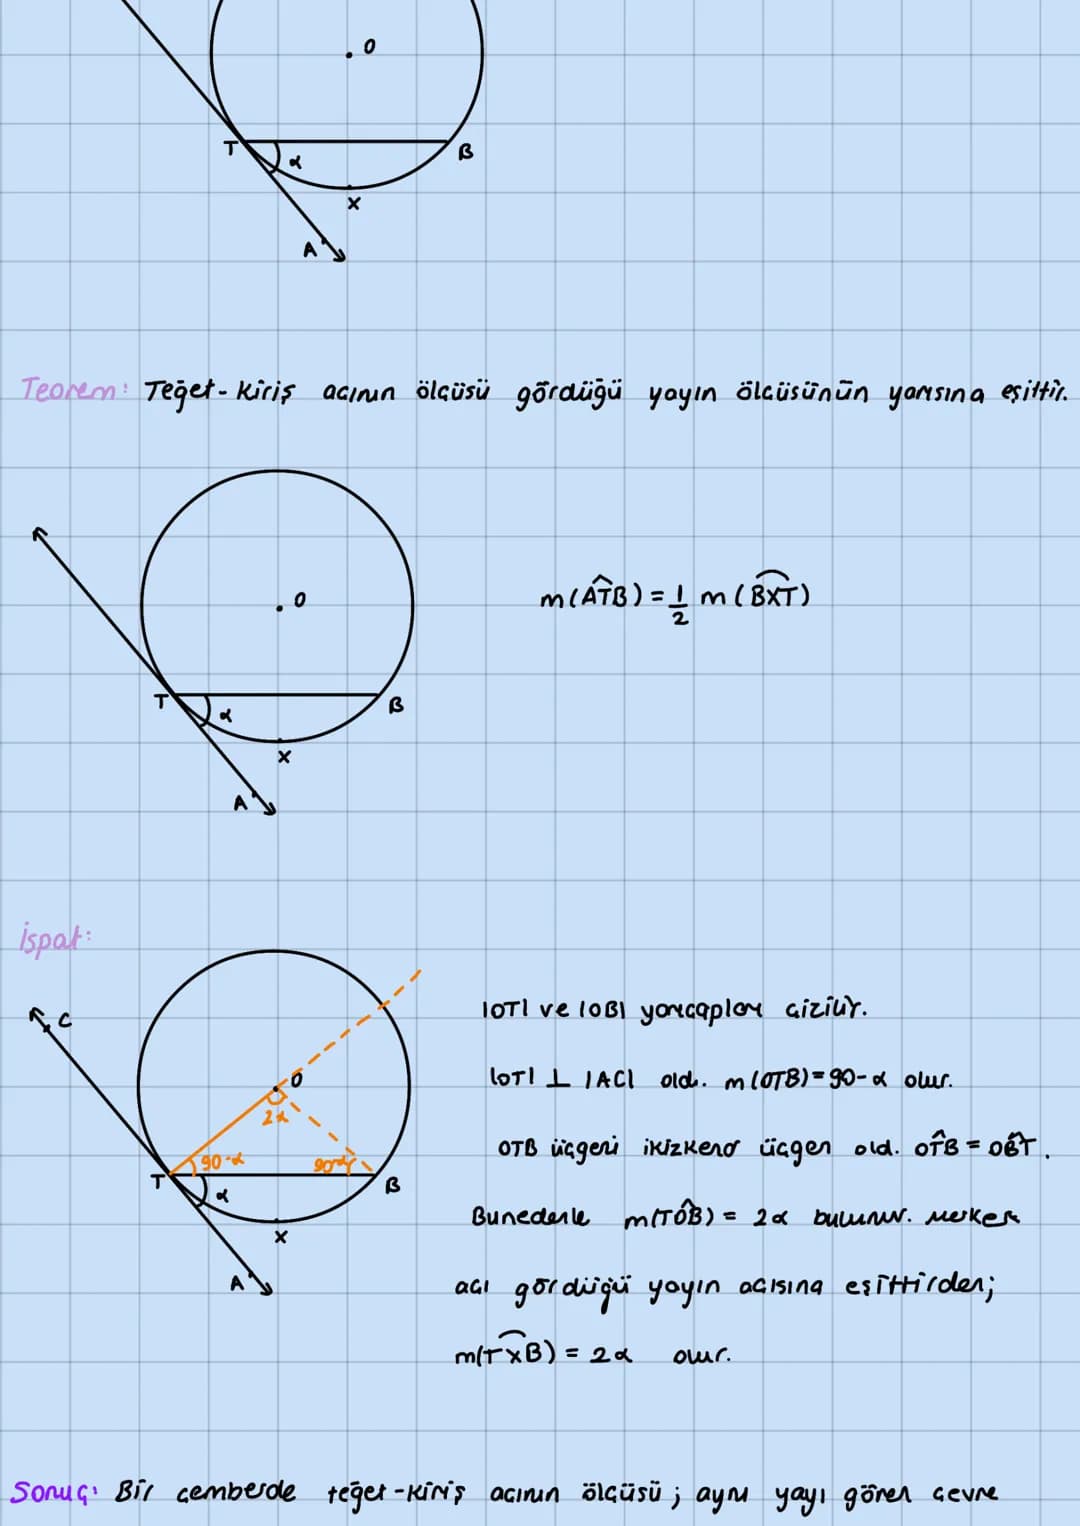 O
T
α
B
x
A
Teorem: Teğet-kiriş açının ölçüsü gördüğü yayın ölçüsünün yarısına eşittir.
O
m(ATB) = 1/2 m(BXT)
T
α
B
x
A
İspat:
C
|OT| ve |OB| yarıçapları çizilir.
O
2α
|OT| ⊥ |AC| old. m(OTB)=90-α olur.
90-α
90-α
OTB üçgeni ikizkenar üçgen old. OTB = OBT.
T
α
B
Bunedenle m(TOB) = 2α bulunur. Merkez
x
A
açı gördüğü yayın açısına eşittirden;
m(TXB) = 2α olur.
Sonuç: Bir çemberde teğet-kiriş açının ölçüsü; aynı yayı gören çevre